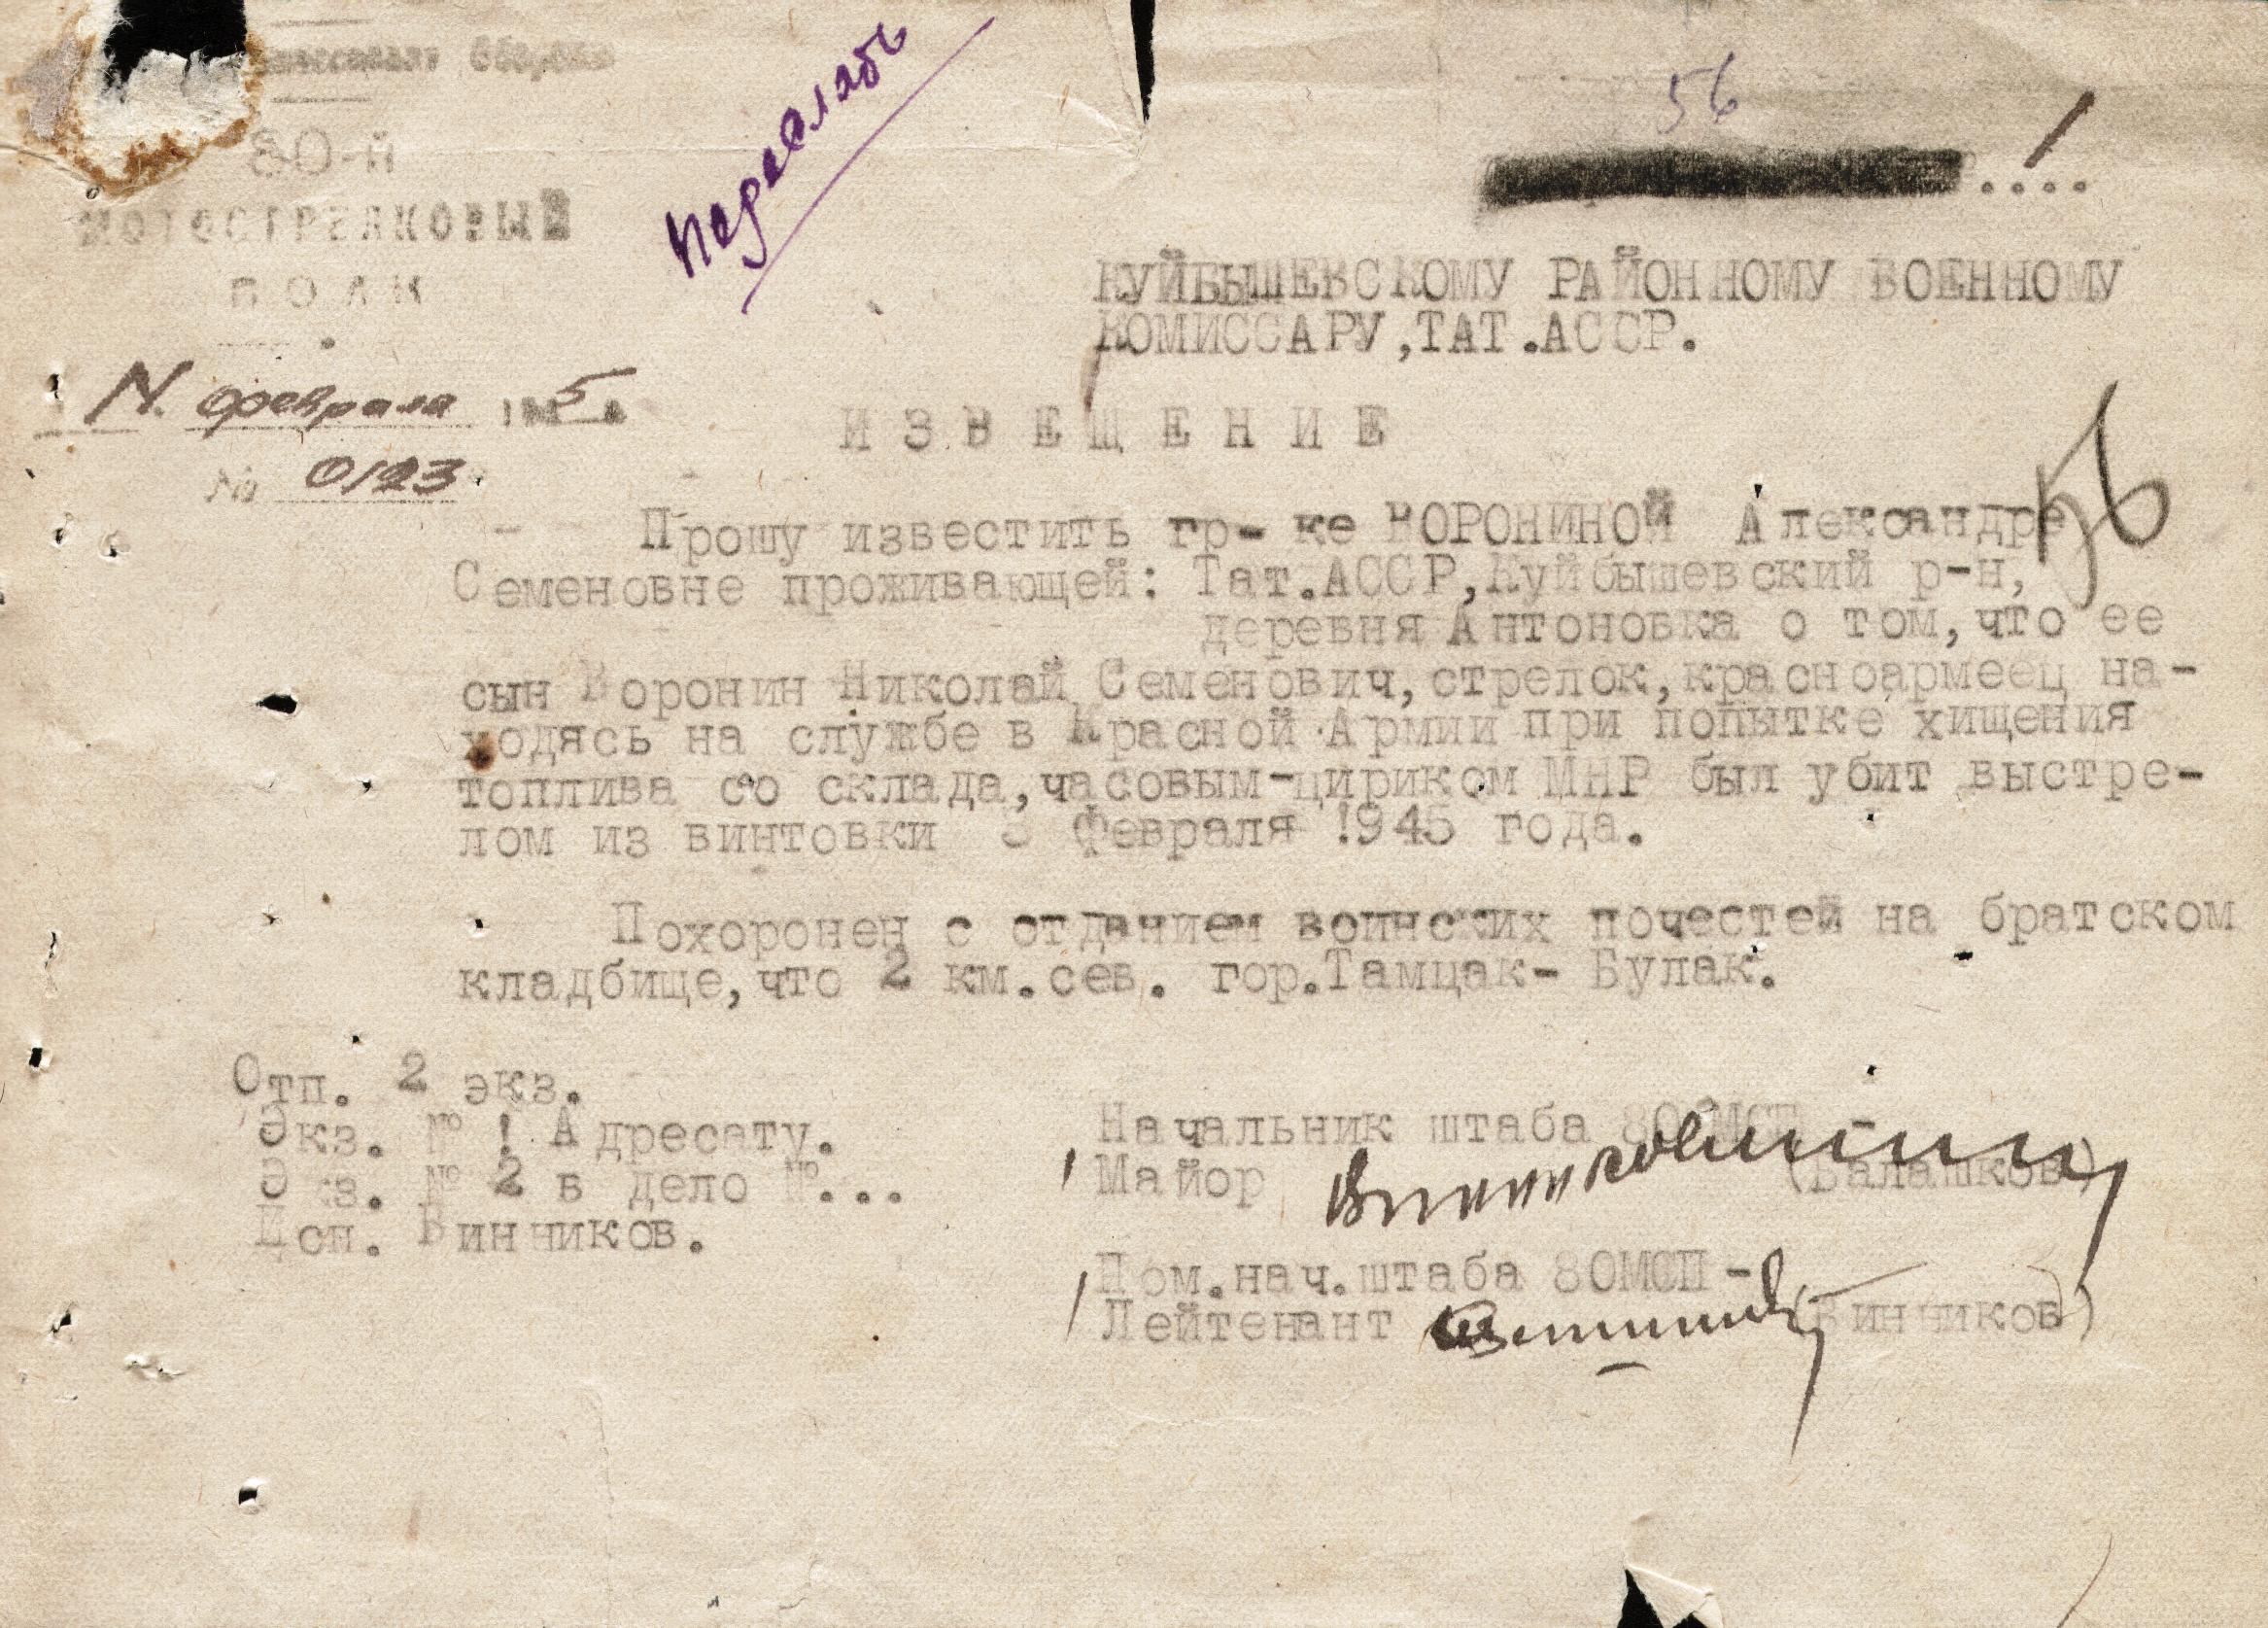 80-й
МОТОСТРЕЛКОВЫЙ
ПОЛК
февраля 194 5
№ 0123
56
....!
КУЙБЫШЕВСКОМУ РАЙОННОМУ ВОЕННОМУ
КОМИССАРУ,ТАТ.АССР.
ИЗВЕЩЕНИЕ
56
Прошу известить гр-ке ВОРОНИНОЙ Александре
Семеновне проживающей: Тат.АССР,Куйбышевский р-н,
деревня Антоновка о том,что ее
сын Воронин Николай Семенович,стрелок,красноармеец на-
ходясь на службе в Красной Армии при попытке хищения
топлива со склада,часовым-цириком МНР был убит выстре-
лом из винтовки 3 Февраля !945 года.
Похоронен с отданием воинских почестей на братском
кладбище,что 2 км.сев. гор.Тамцак- Булак.
Отп. 2 экз.
Экз. № ! Адресату.
Экз. № 2 в дело №...
Исп. Винников.
Начальник штаба 80 МСП -
Майор (Балашков)
Пом.нач.штаба 80МСП -
Лейтенант (Винников)